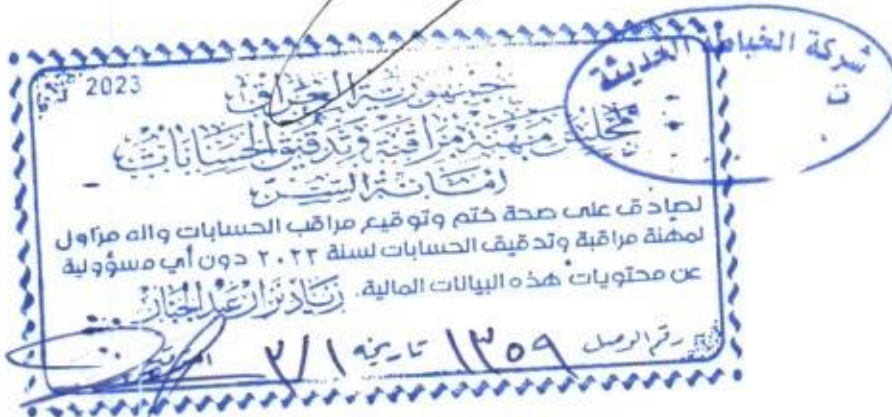 شركة الخياطة الحديثة
ت
2023
جمهورية العراق
مجلس مهنة مراقبة وتدقيق الحسابات
امانة السر
نصادق على صحة ختم وتوقيع مراقب الحسابات وانه مزاول
لمهنة مراقبة وتدقيق الحسابات لسنة ٢٠٢٣ دون أي مسؤولية
عن محتويات هذه البيانات المالية. زياد نزار عبد الجبار
رقم الوصل ١٣٥٩ تاريخه ٣/١